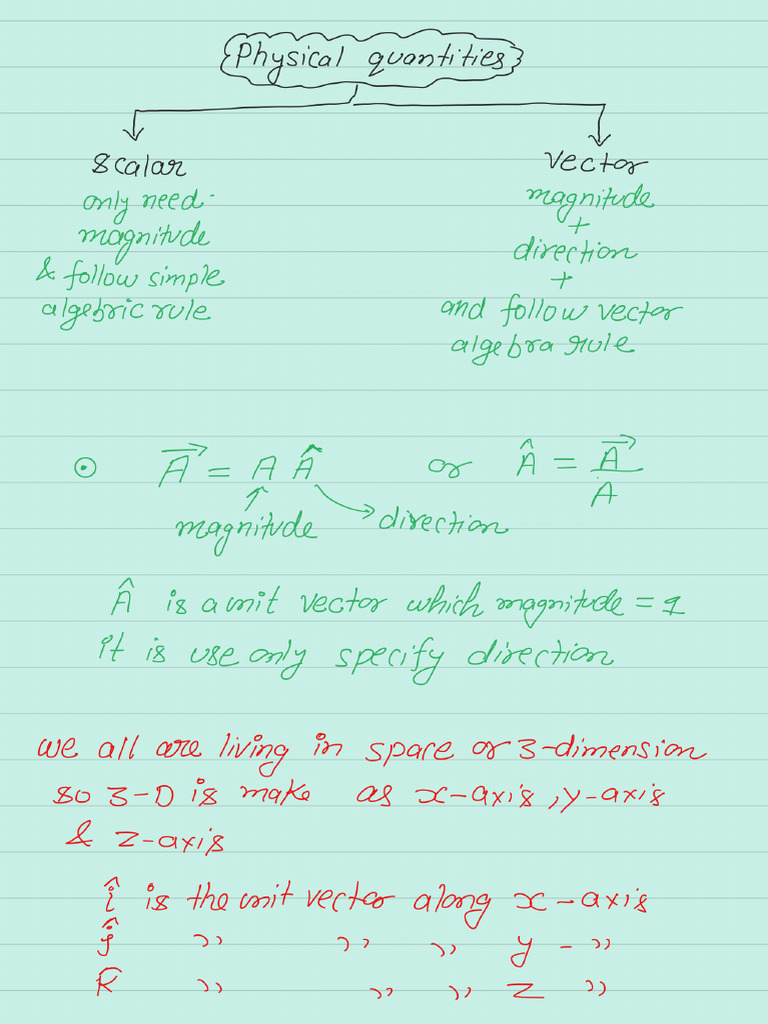 Physical quantities
scalar
only need
magnitude
& follow simple
algebric rule
vector
magnitude
+
direction
+
and follow vector
algebra rule
⊙ A⃗ = A Â or Â = A⃗ / A
magnitude direction
Â is a unit vector which magnitude = 1
it is use only specify direction
we all are living in space or 3-dimension
so 3-D is make as x-axis, y-axis
& z-axis
î is the unit vector along x-axis
ĵ ,, ,, ,, y - ,,
K ,, ,, ,, z ,,